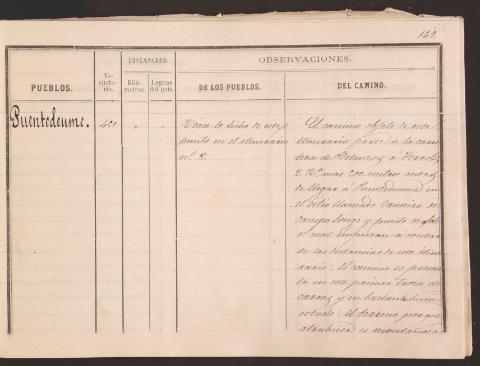 149.
DISTANCIAS.
OBSERVACIONES.
PUEBLOS.
Ve-
cinda-
rio.
Kiló-
metros.
Leguas
del país.
DE LOS PUEBLOS.
DEL CAMINO.
Puentedeume.
451
"
"
Véase lo dicho de este
punto en el itinerario
nº 2.
El camino objeto de este
itinerario parte de la carre
tera de Betanzos á Ferrol
2 K.s mas 200 metros antes
de llegar á Puentedeume en
el sitio llamado Cruceiro de
Campo longo y punto
el cual empiezan á contar
se las distancias de este itine
rario: El camino se presen
ta en este primer trozo de
carros y en bastante buen
estado: el terreno por que
atraviesa es montañoso